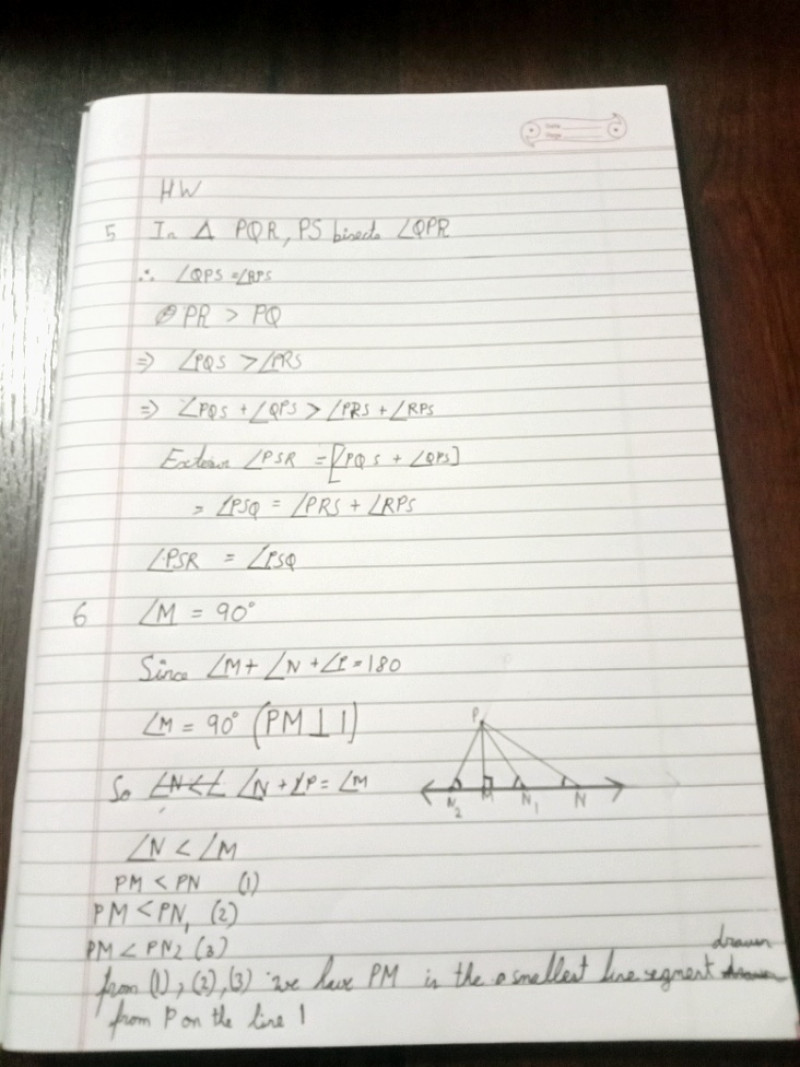 HW
5 In Δ PQR, PS bisects ∠QPR
∴ ∠QPS = ∠RPS
PR > PQ
⇒ ∠PQS > ∠PRS
⇒ ∠PQS + ∠QPS > ∠PRS + ∠RPS
Exterior ∠PSR = [PQS + ∠QPS]
= ∠PSQ = ∠PRS + ∠RPS
∠PSR = ∠PSQ
6 ∠M = 90°
Since ∠M + ∠N + ∠P = 180
∠M = 90° (PM ⊥ l)
So ∠N + ∠P = ∠M
∠N < ∠M
PM < PN (1)
PM < PN₁ (2)
PM < PN₂ (3)
from (1), (2), (3) we have PM is the smallest line segment drawn
from P on the line l
P
N₂ M N₁ N